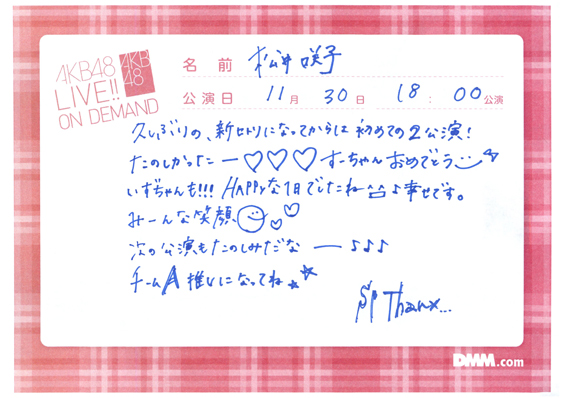 AKB48
LIVE!!
ON DEMAND
AKB
48
名前 松井咲子
公演日 11月30日 18:00公演
久しぶりの、新セトリになってからは初めての2公演!
たのしかったー♡♡♡すーちゃんおめでとう
いずちゃんも!!! HAPPyな1日でしたね♪幸せです。
みーんな笑顔
次の公演もたのしみだなー♪♪♪
チームA推しになってね
Sp Thanx...
DMM.com